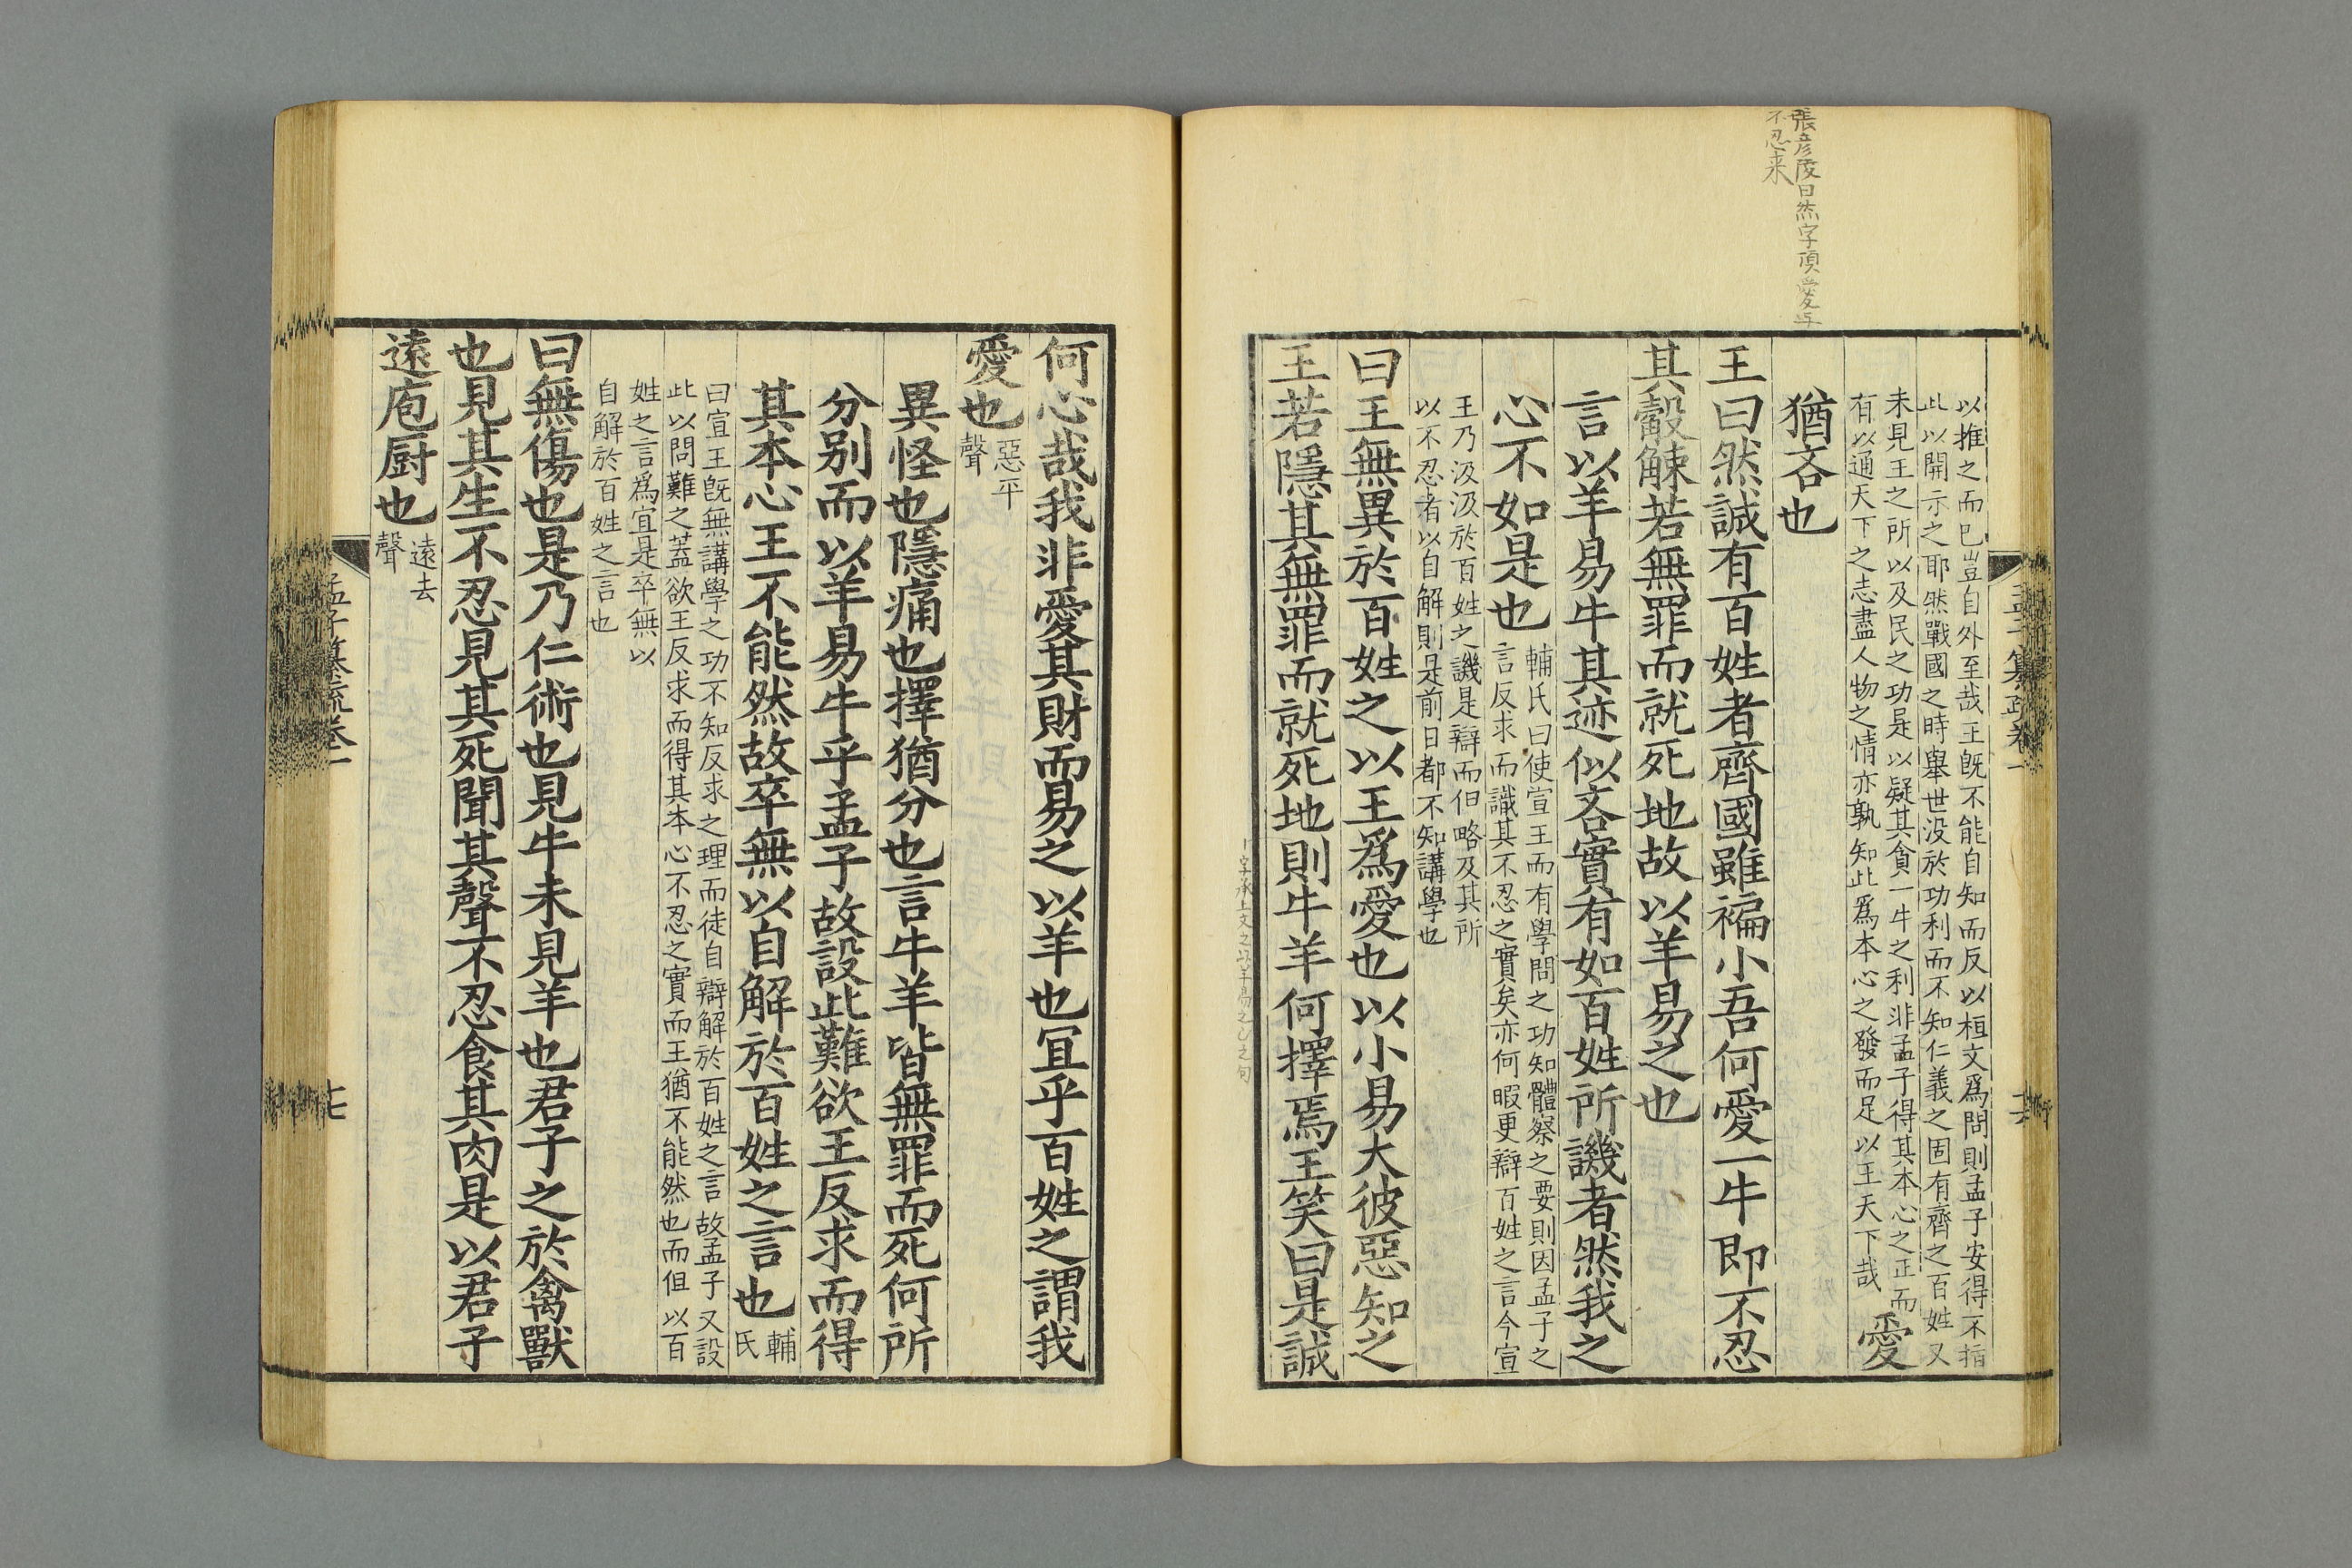 張彦陵曰然字頂愛与
不忍来
以推之而已豈自外至哉王旣不能自知而反以桓文爲問則孟子安得不指
此以開示之耶然戰國之時舉世没於功利而不知仁義之固有齊之百姓又
未見王之所以及民之功是以疑其貪一牛之利非孟子得其本心之正而
有以通天下之志盡人物之情亦孰知此爲本心之發而足以王天下哉
愛
猶吝也
王曰然誠有百姓者齊國雖褊小吾何愛一牛即不忍
其觳觫若無罪而就死地故以羊易之也
言以羊易牛其迹似吝實有如百姓所譏者然我之
心不如是也
輔氏曰使宣王而有學問之功知體察之要則因孟子之
言反求而識其不忍之實矣亦何暇更辯百姓之言今宣
王乃汲汲於百姓之譏是辯而但略及其所
以不忍者以自解則是前日都不知講學也
曰王無異於百姓之以王爲愛也以小易大彼惡知之
王若隱其無罪而就死地則牛羊何擇焉王笑曰是誠
何心哉我非愛其財而易之以羊也冝乎百姓之謂我
愛也
惡平
聲
異怪也隱痛也擇猶分也言牛羊皆無罪而死何所
分别而以羊易牛乎孟子故設此難欲王反求而得
其本心王不能然故卒無以自解於百姓之言也
輔
氏
曰宣王旣無講學之功不知反求之理而徒自辯解於百姓之言故孟子又設
此以問難之蓋欲王反求而得其本心不忍之實而王猶不能然也而但以百
姓之言爲宜是卒無以
自解於百姓之言也
曰無傷也是乃仁術也見牛未見羊也君子之於禽獸
也見其生不忍見其死聞其聲不忍食其肉是以君子
遠庖厨也
遠去
聲
孟子纂疏卷一
七